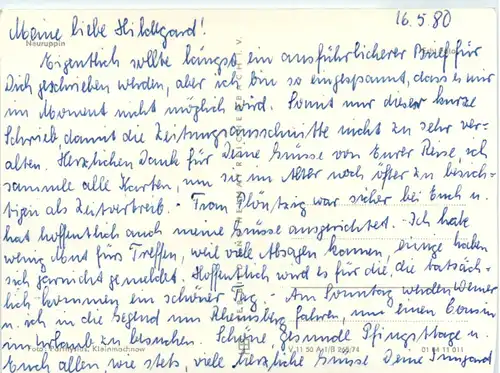 16.5.80
Meine liebe Hildegard!
Neuruppin
Eigentlich sollte längst ein ausführlicherer Brief für
Dich geschrieben werden, aber ich bin so eingespannt, dass es mir
im Moment nicht möglich wird. Somit nur dieser kurze
Schrieb, damit die Zeitungsausschnitte nicht zu sehr ver-
alten. Herzlichen Dank für Deine Grüsse von Eurer Reise, ich
sammle alle Karten, um sie im Alter noch öfter zu besich-
tigen als Zeitvertreib. - Frau war sicher bei Euch u.
hat hoffentlich auch meine Grüsse ausgerichtet. - Ich habe
wenig Mut für Treffen, weil viele Absagen kamen, einige haben
sich garnicht gemeldet. Hoffentlich wird es für die, die tatsäch-
lich kommen ein schöner Tag. - Am Sonntag werden Werner
u. ich in die Gegend um Rheinsberg fahren, um einen Cousin
im Urlaub zu besuchen. Schöne, gesunde Pfingsttage u.
Foto: Kleinmachnow
V 11 50 A 1/B
01 04 11 011
Euch allen wie stets, viele herzliche Grüsse Deine Irmgard